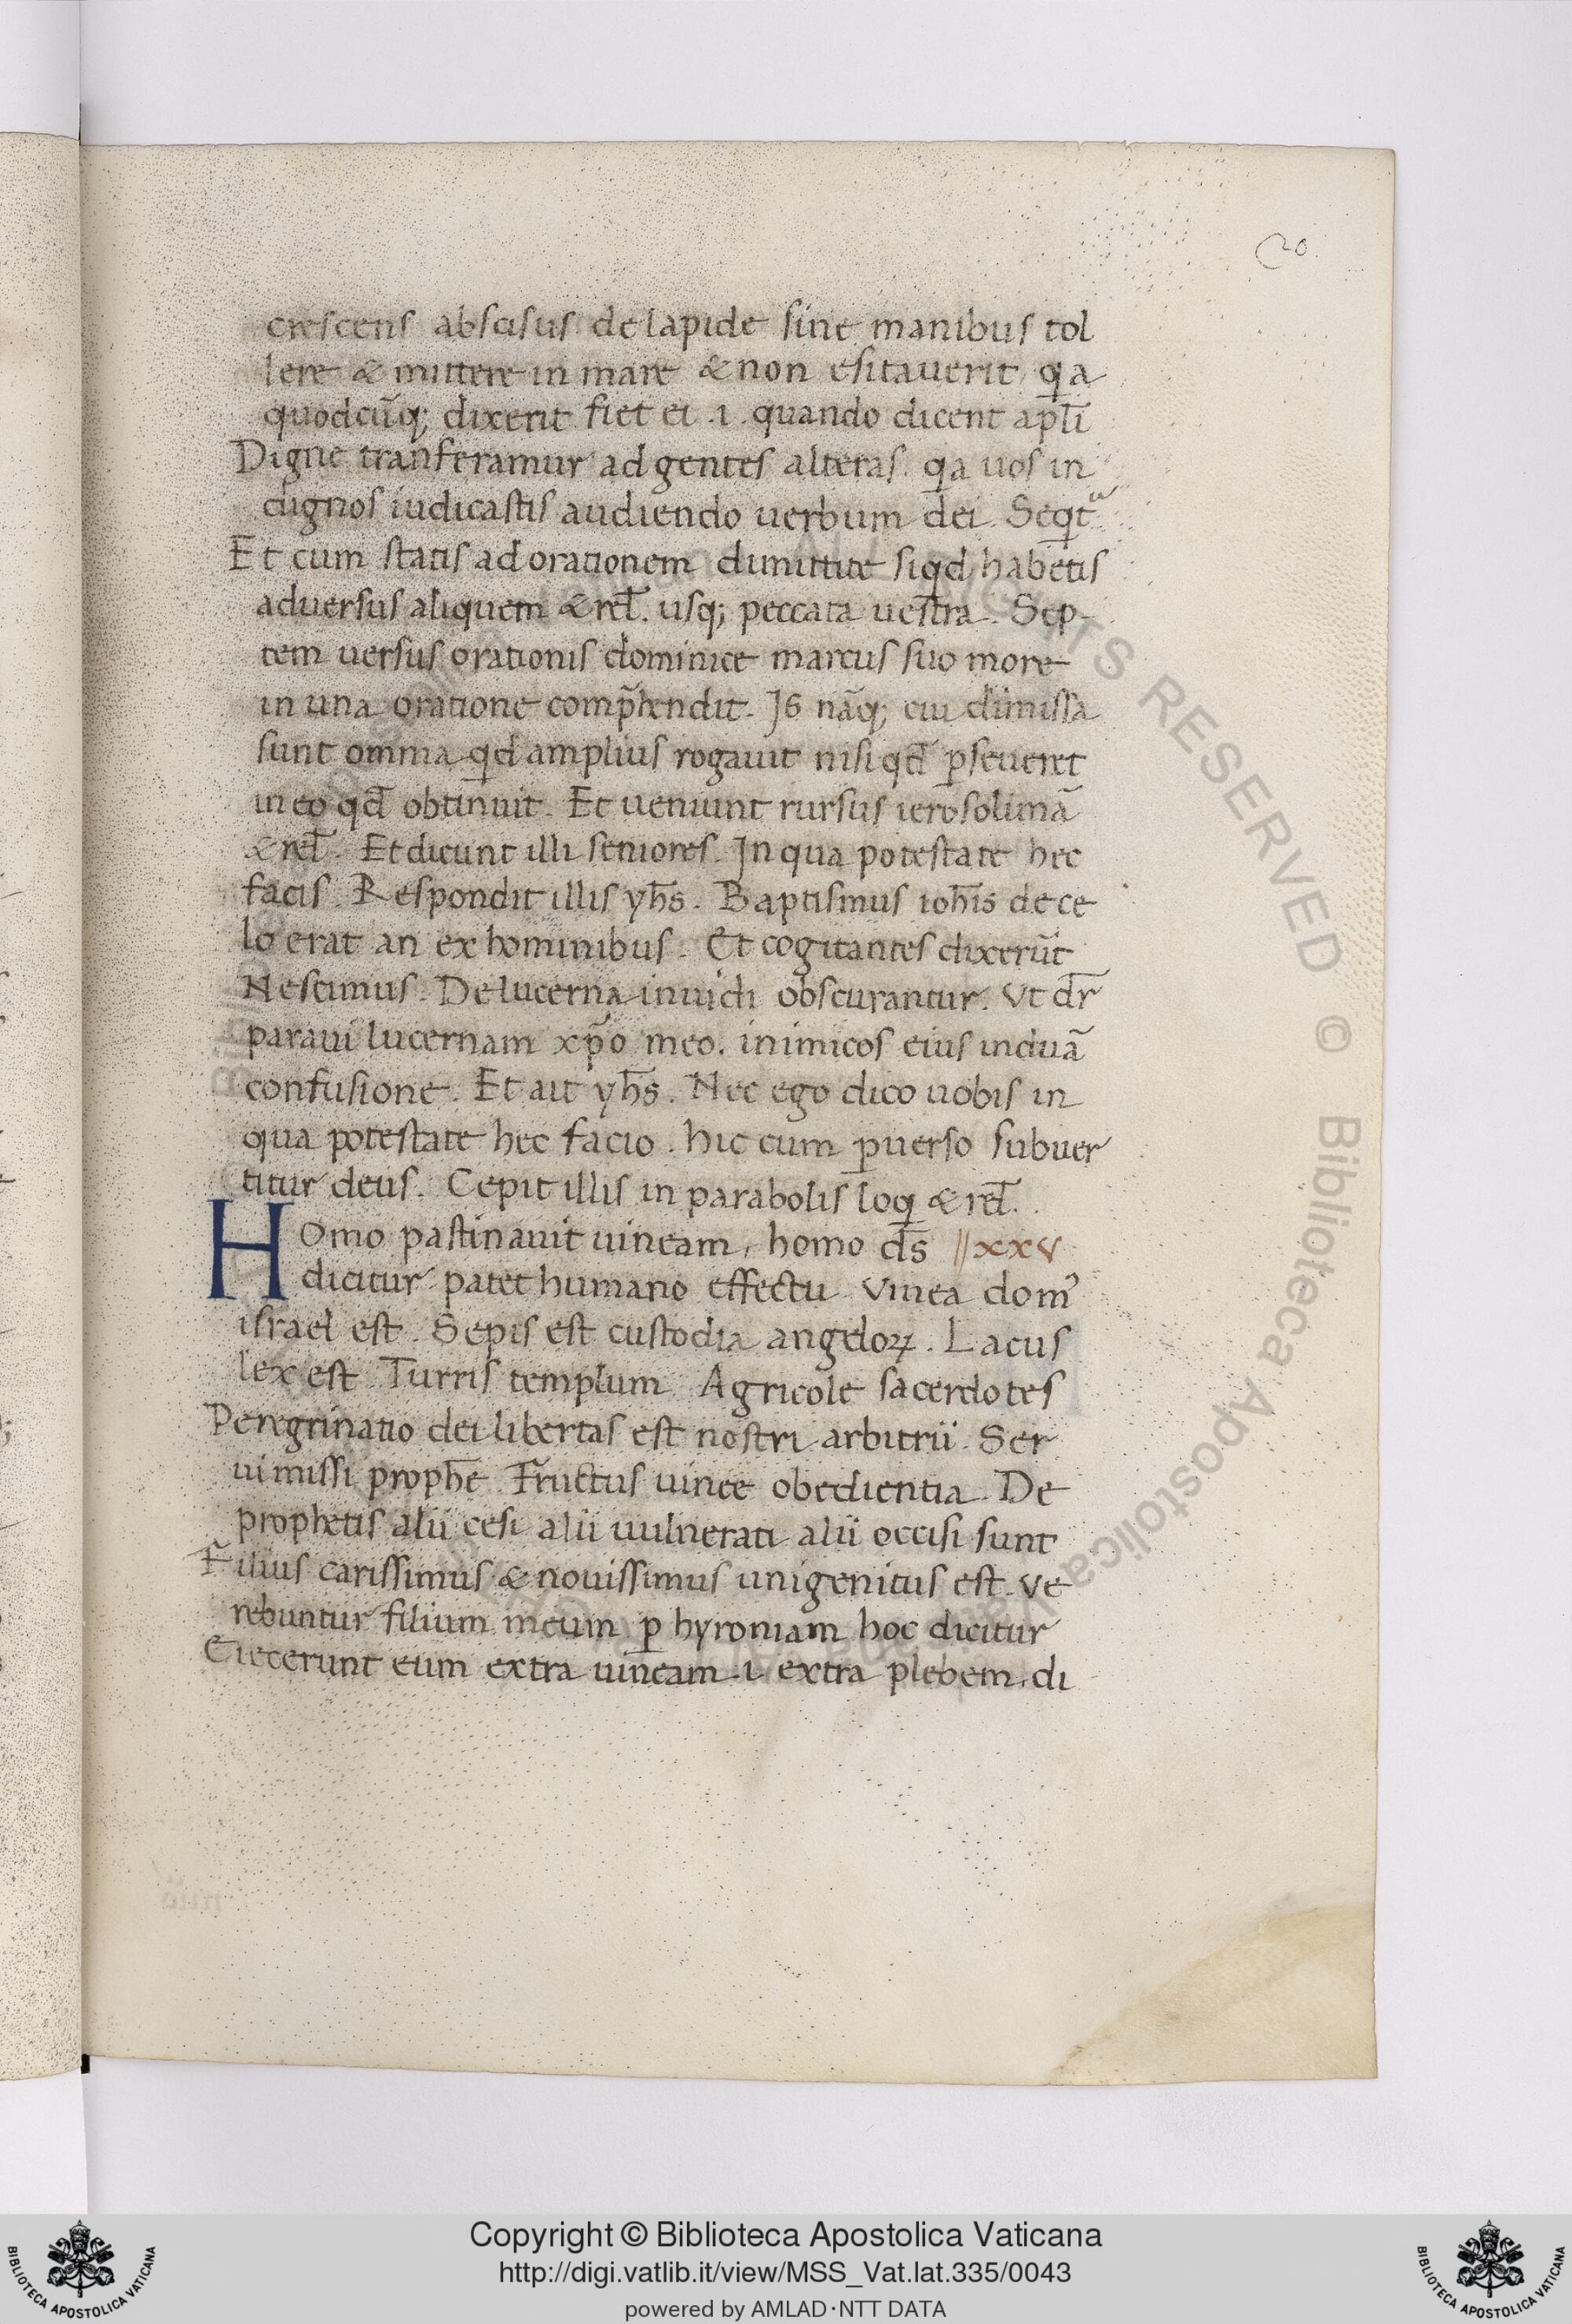 20
crescens abscisus de lapide sine manibus tol
lere & mittere in mare & non esitauerit qa
quodcūq; dixerit fiet ei .i. quando dicent apl̄i
Digne tranferamur ad gentes alteras. qa uos in
dignos iudicastis audiendo uerbum dei. Seqt̃
Et cum statis ad orationem dimittite siqd habetis
aduersus aliquem & rel̄. usq; peccata uestra. Sep-
tem uersus orationis dominice marcus suo more
in una oratione comp̃hendit. Is nāq; cui dimissa
sunt omnia qd amplius rogauit nisi qd̄ ꝑseueret
in eo qd̄ obtinuit. Et ueniunt rursus ierosolimā
& rel̄. Et dicunt illi seniores. In qua potestate hec
facis. Respondit illis yh̄s. Baptismus ioh̄is de ce
lo erat an ex hominibus. Et cogitantes dixerūt
Nescimus. De lucerna inuidi obscurantur. Vt dr̄
paraui lucernam xp̄o meo. inimicos eius induā
confusione. Et ait yh̄s. Nec ego dico uobis in
qua potestate hec facio. hic cum ꝑuerso subuer
titur deus. Cepit illis in parabolis loq & rel̄.
HOmo pastinauit uineam, homo d̄s //xxv
dicitur patet humano effectu. Vinea dom̓
israel est. Sepis est custodia angeloꝝ. Lacus
lex est. Turris templum. Agricole sacerdotes
Peregrinatio dei libertas est nostri arbitrii. Ser
ui missi proph̄e. Fructus uinee obedientia. De
prophetis alii cesi alii uulnerati alii occisi sunt
Filius carissimus & nouissimus unigenitus est. Ve
rebuntur filium meum ꝑ hyroniam hoc dicitur
Eiecerunt eum extra uineam .i. extra plebem. di
Copyright © Biblioteca Apostolica Vaticana
http://digi.vatlib.it/view/MSS_Vat.lat.335/0043
powered by AMLAD·NTT DATA